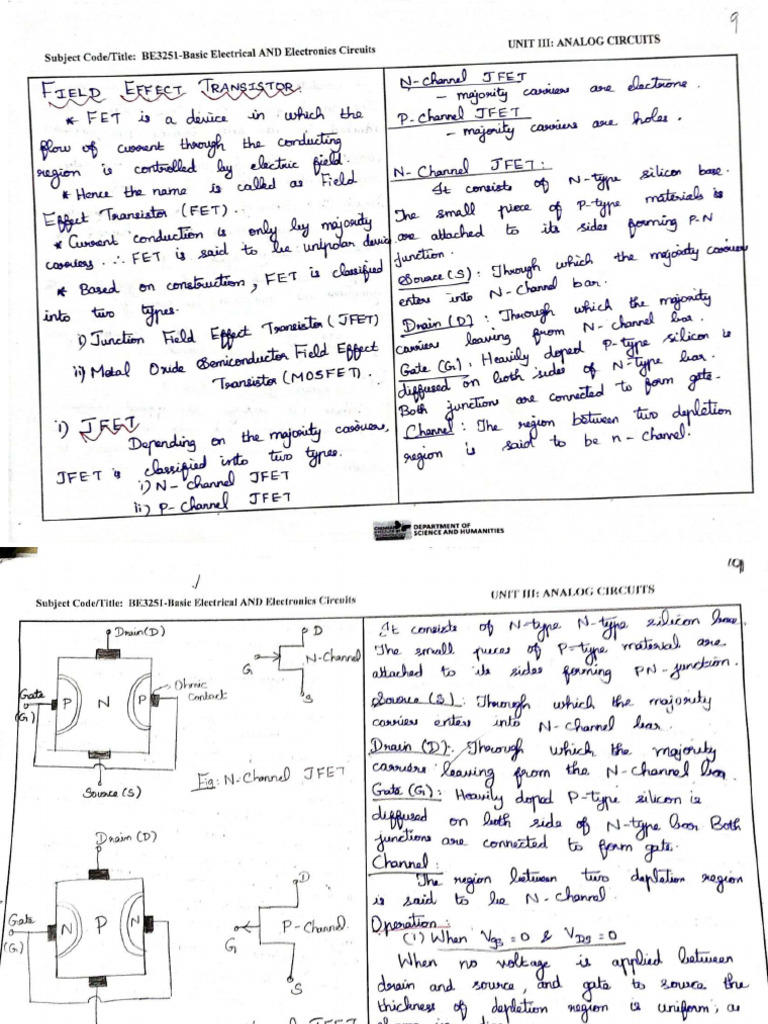 9
Subject Code/Title: BE3251-Basic Electrical AND Electronics Circuits
UNIT III: ANALOG CIRCUITS
FIELD EFFECT TRANSISTOR.
* FET is a device in which the
flow of current through the conducting
region is controlled by electric field.
* Hence the name is called as Field
Effect Transistor (FET).
* Current conduction is only by majority
carriers. ∴ FET is said to be unipolar device
* Based on construction, FET is classified
into two types.
i) Junction Field Effect Transistor (JFET)
ii) Metal Oxide Semiconductor Field Effect
Transistor (MOSFET).
i) JFET
Depending on the majority carriers,
JFET is classified into two types.
i) N-channel JFET
ii) P-channel JFET
N-channel JFET
- majority carriers are electrons.
P-channel JFET
- majority carriers are holes.
N-Channel JFET:
It consists of N-type silicon base.
The small piece of P-type materials is
are attached to its sides forming P-N
junction.
Source (S): Through which the majority carriers
enters into N-channel bar.
Drain (D): Through which the majority
carriers leaving from N-channel bar.
Gate (G): Heavily doped P-type silicon is
diffused on both sides of N-type bar.
Both junctions are connected to form gate.
Channel: The region between two depletion
region is said to be n-channel.
DEPARTMENT OF
SCIENCE AND HUMANITIES
10
Subject Code/Title: BE3251-Basic Electrical AND Electronics Circuits
UNIT III: ANALOG CIRCUITS
Drain(D)
Gate
(G)
P
N
P
Ohmic
Contact
Source (S)
D
G
N-Channel
S
Fig: N-Channel JFET
Drain (D)
Gate
(G)
N
P
N
D
G
P-Channel
S
JFET
It consists of N-type N-type silicon base.
The small pieces of P-type material are
attached to its sides forming PN-junction.
Source (S): Through which the majority
carrier enters into N-channel bar.
Drain (D): Through which the majority
carriers leaving from the N-channel bar.
Gate (G): Heavily doped P-type silicon is
diffused on both side of N-type bar Both
junctions are connected to form gate.
Channel:
The region between two depletion region
is said to be N-channel.
Operation:
(i) When Vgs = 0 & VDs = 0
When no voltage is applied between
drain and source, and gate to source the
thickness of depletion region is uniform, as